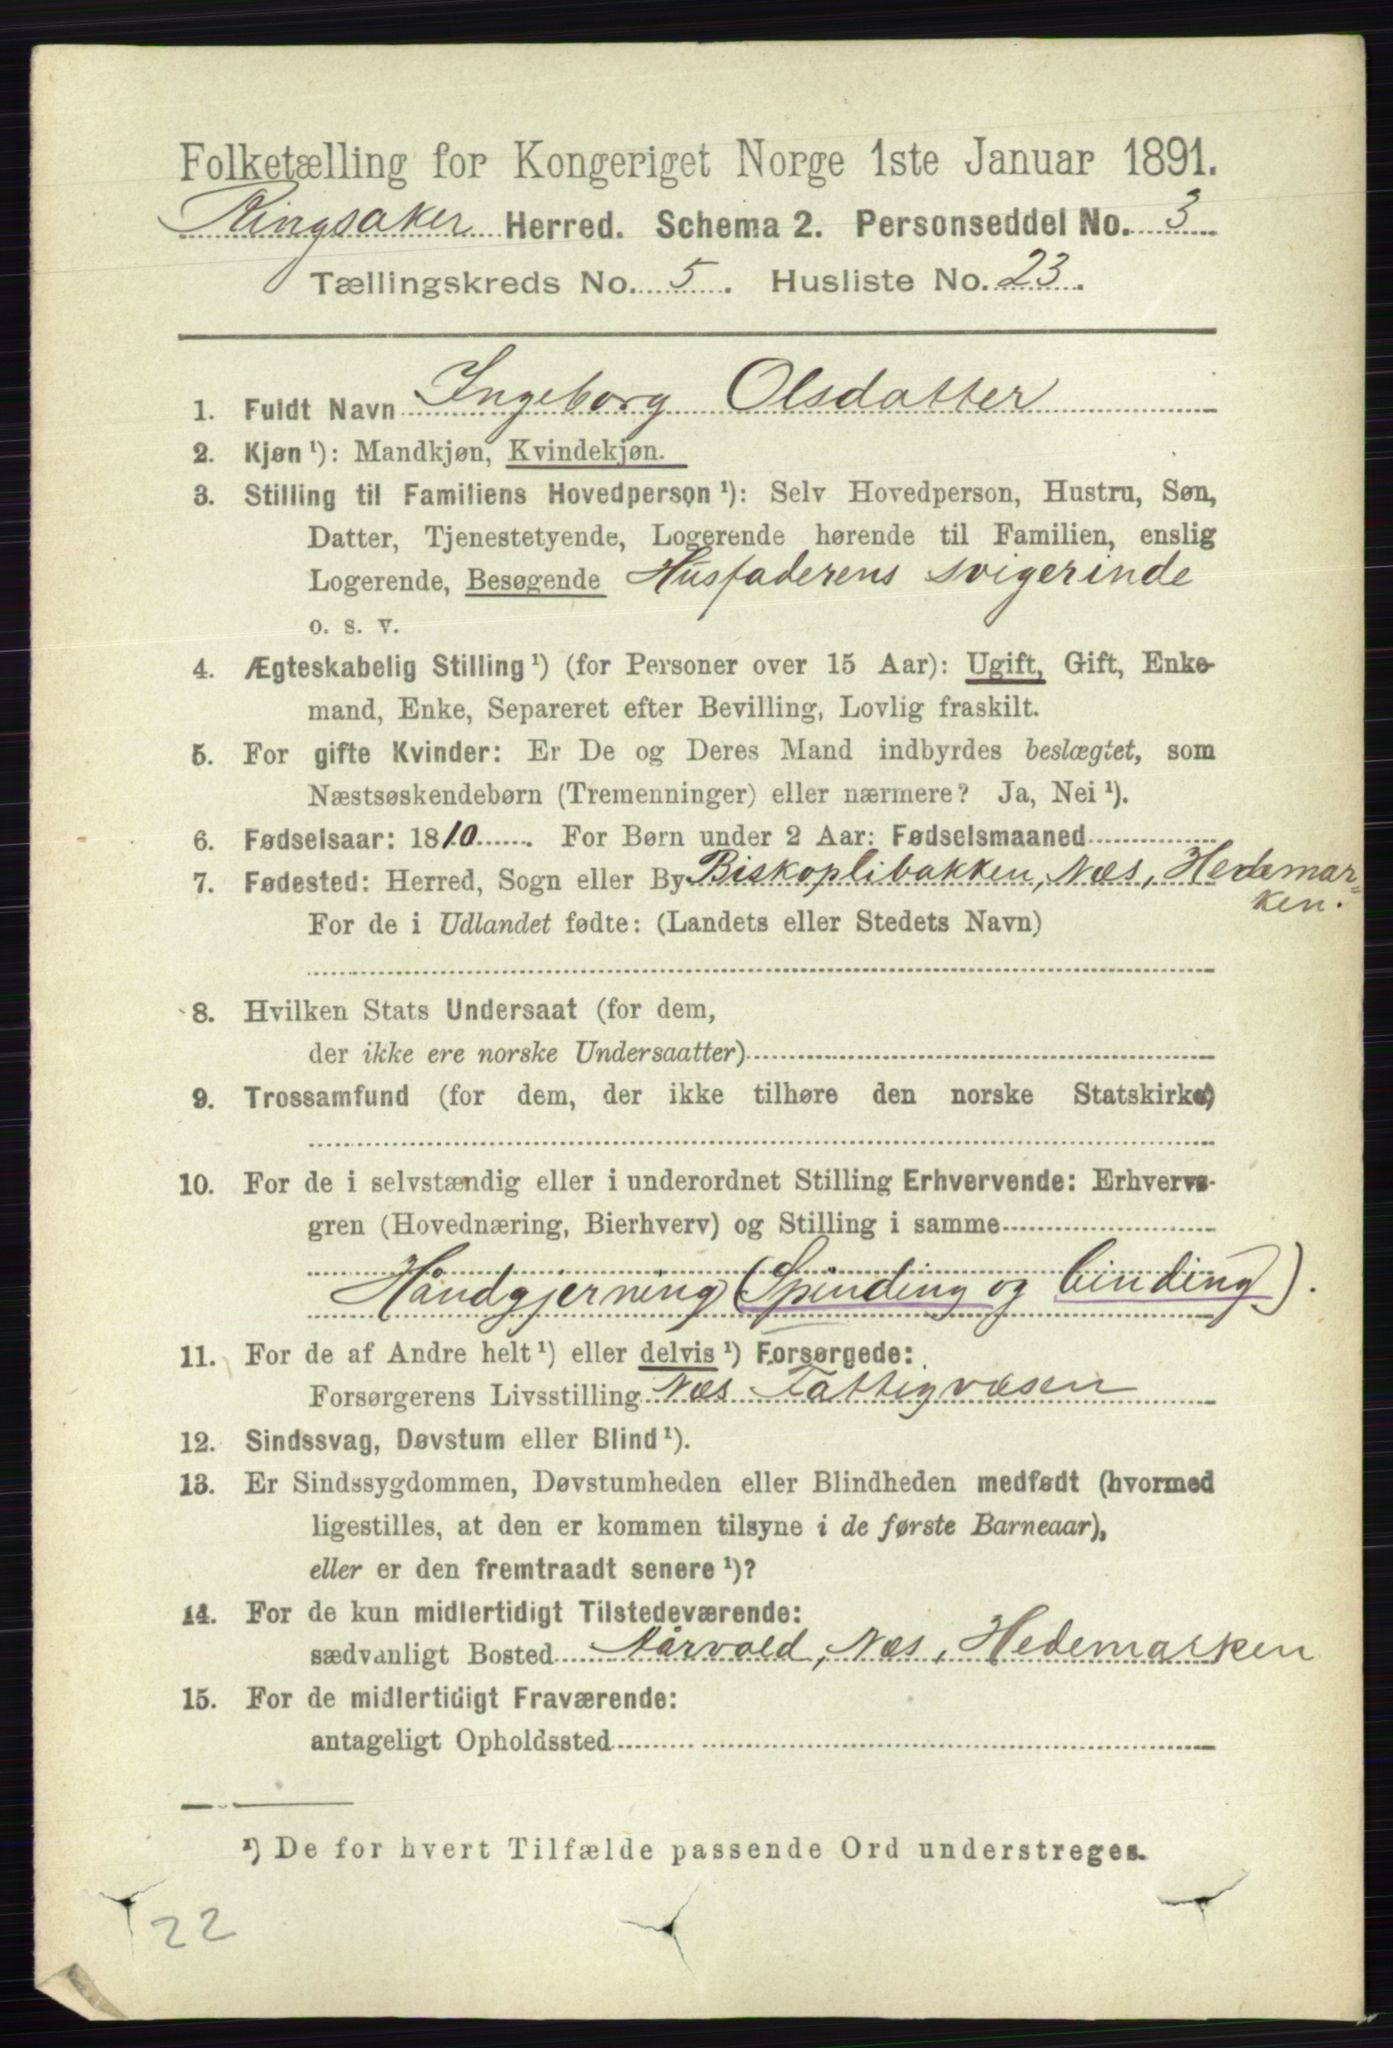 Folketælling for Kongeriget Norge 1ste Januar 1891.
Ringsaker Herred. Schema 2. Personseddel No. 3
Tællingskreds No. 5. Husliste No. 23.
1. Fuldt Navn Ingeborg Olsdatter
2. Kjøn ¹): Mandkjøn, Kvindekjøn.
3. Stilling til Familiens Hovedperson ¹): Selv Hovedperson, Hustru, Søn,
Datter, Tjenestetyende, Logerende hørende til Familien, enslig
Logerende, Besøgende Husfaderens svigerinde
o. s. v.
4. Ægteskabelig Stilling ¹) (for Personer over 15 Aar): Ugift, Gift, Enke-
mand, Enke, Separeret efter Bevilling, Lovlig fraskilt.
5. For gifte Kvinder: Er De og Deres Mand indbyrdes beslægtet, som
Næstsøskendebørn (Tremenninger) eller nærmere? Ja, Nei ¹).
6. Fødselsaar: 1810. For Børn under 2 Aar: Fødselsmaaned
7. Fødested: Herred, Sogn eller By Biskoplibakken, Næs, Hedemar-
ken.
For de i Udlandet fødte: (Landets eller Stedets Navn)
8. Hvilken Stats Undersaat (for dem,
der ikke ere norske Undersaatter)
9. Trossamfund (for dem, der ikke tilhøre den norske Statskirke)
10. For de i selvstændig eller i underordnet Stilling Erhvervende: Erhvervs-
gren (Hovednæring, Bierhverv) og Stilling i samme
Håndgjerning (Spinding og binding).
11. For de af Andre helt ¹) eller delvis ¹) Forsørgede:
Forsørgerens Livsstilling Næs Fattigvæsen
12. Sindssvag, Døvstum eller Blind ¹).
13. Er Sindssygdommen, Døvstumheden eller Blindheden medfødt (hvormed
ligestilles, at den er kommen tilsyne i de første Barneaar),
eller er den fremtraadt senere ¹)?
14. For de kun midlertidigt Tilstedeværende:
sædvanligt Bosted Nårvold, Næs, Hedemarken
15. For de midlertidigt Fraværende:
antageligt Opholdssted
¹) De for hvert Tilfælde passende Ord understreges.
22